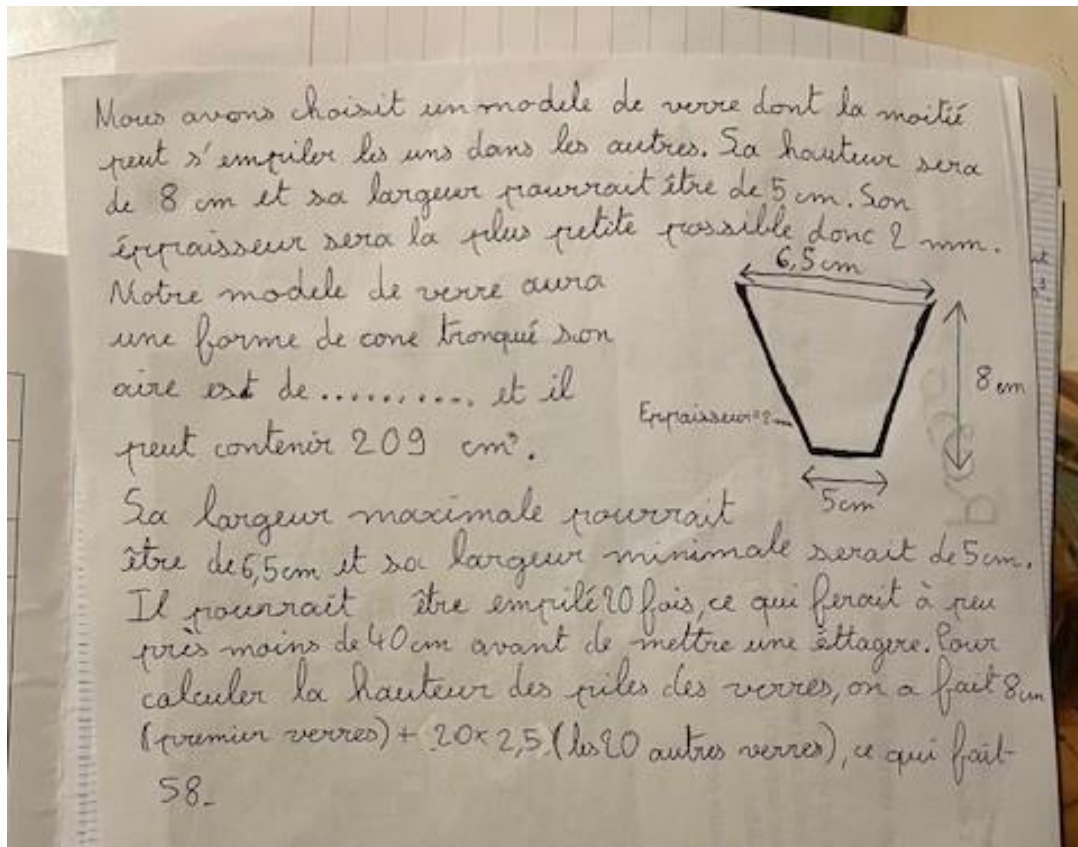 Nous avons choisit un modele de verre dont la moitié
peut s'empiler les uns dans les autres. Sa hauteur sera
de 8 cm et sa largeur pourrait être de 5 cm. Son
éppraisseur sera la plus petite possible donc 2 mm.
Notre modele de verre aura
une forme de cone tronqué son
aire est de .......... et il
peut contenir 209 cm³.
6,5 cm
8 cm
Eppaisseur=2mm
5cm
Sa largeur maximale pourrait
être de 6,5cm et sa largeur minimale serait de 5cm.
Il pourrait être empilé 20 fois, ce qui ferait à peu
près moins de 40 cm avant de mettre une éttagere. Pour
calculer la hauteur des piles des verres, on a fait 8cm
(premier verres) + 20×2,5 (les 20 autres verres), ce qui fait
58.